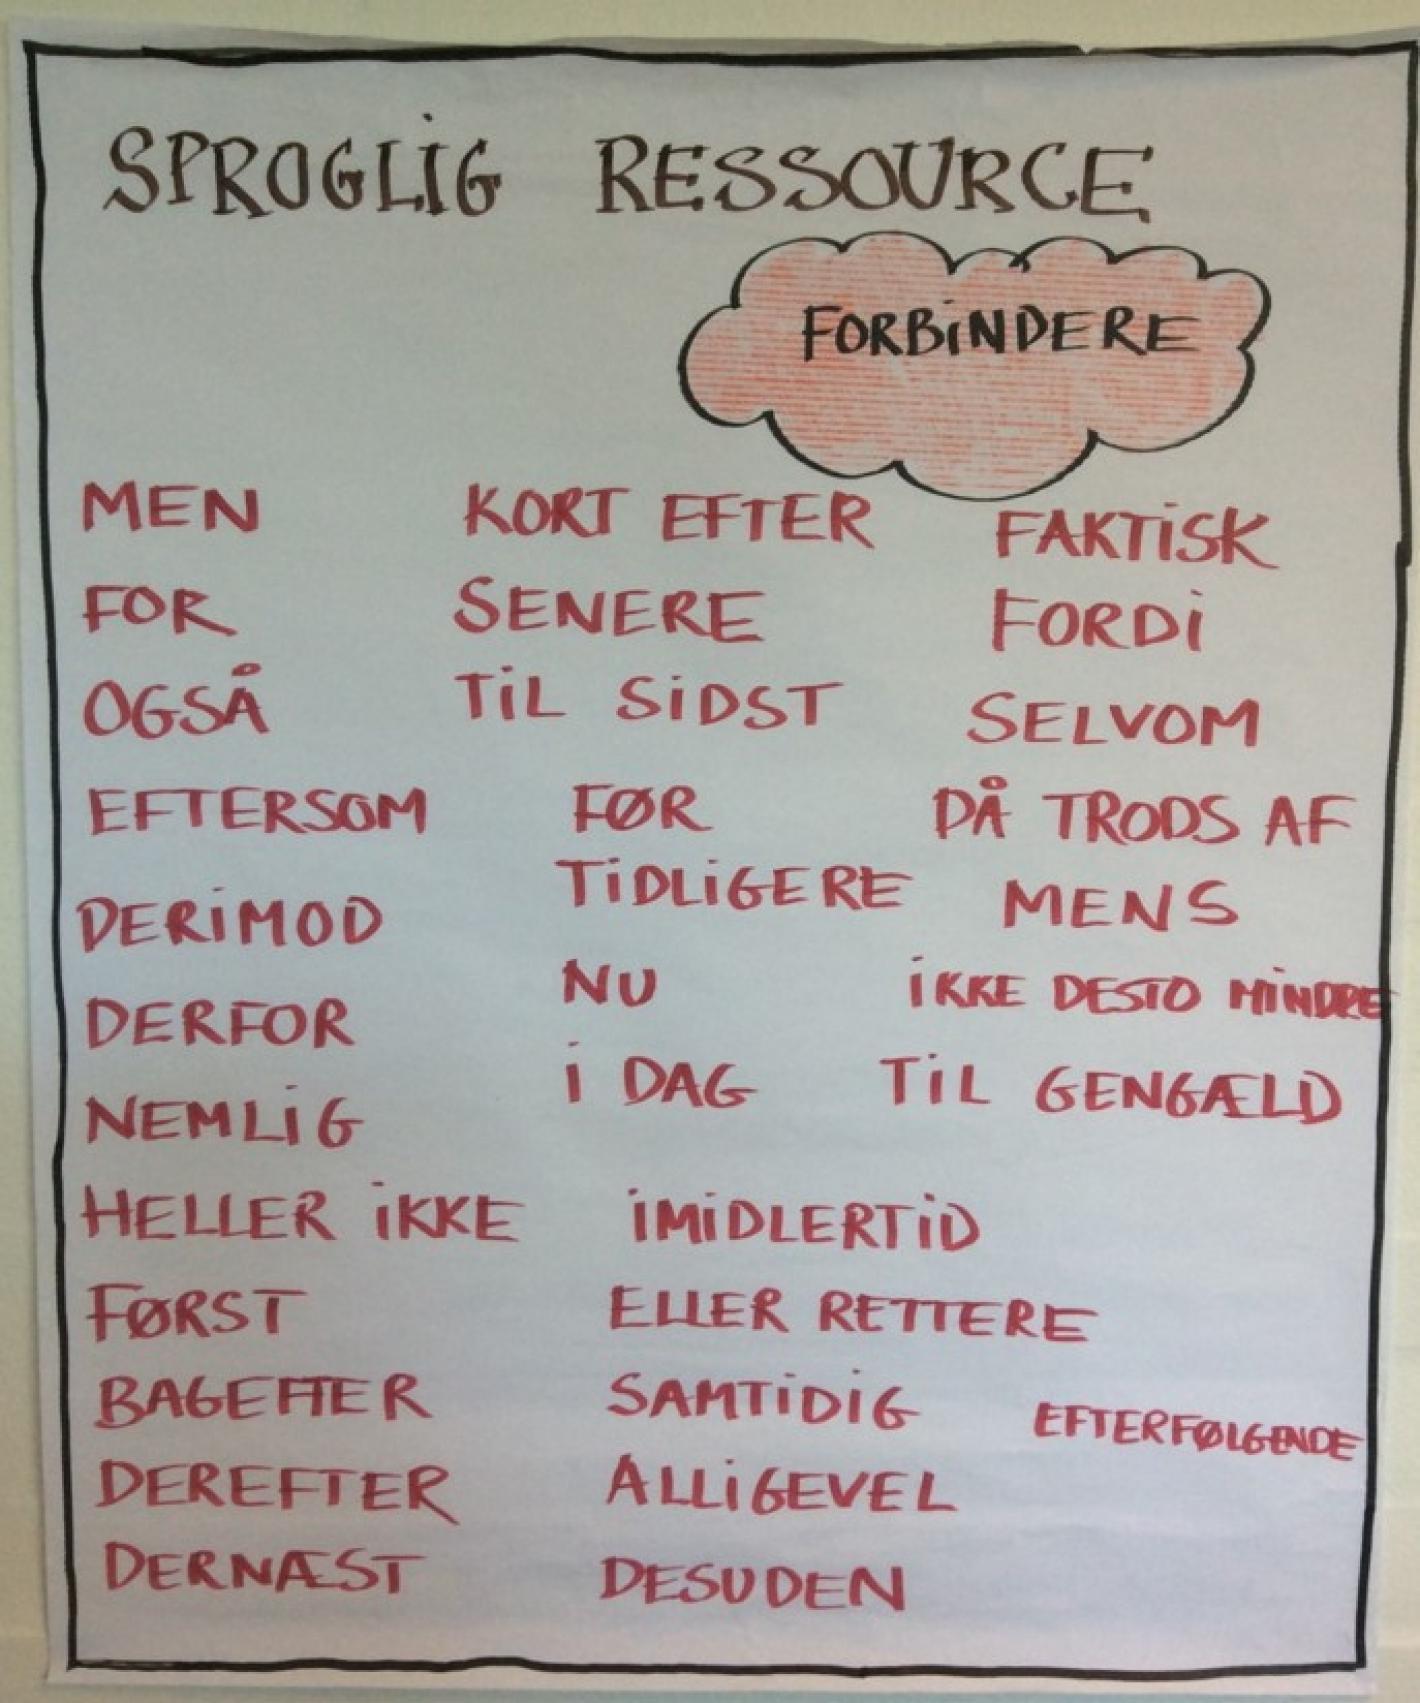 SPROGLIG RESSOURCE
FORBINDERE
MEN
FOR
OGSÅ
EFTERSOM
DERIMOD
DERFOR
NEMLIG
HELLER IKKE
FØRST
BAGEFTER
DEREFTER
DERNÆST
KORT EFTER
SENERE
TIL SIDST
FØR
TIDLIGERE
NU
I DAG
IMIDLERTID
ELLER RETTERE
SAMTIDIG
ALLIGEVEL
DESUDEN
FAKTISK
FORDI
SELVOM
PÅ TRODS AF
MENS
IKKE DESTO MINDRE
TIL GENGÆLD
EFTERFØLGENDE